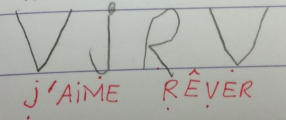 V J R V
J'AiME RÊVER